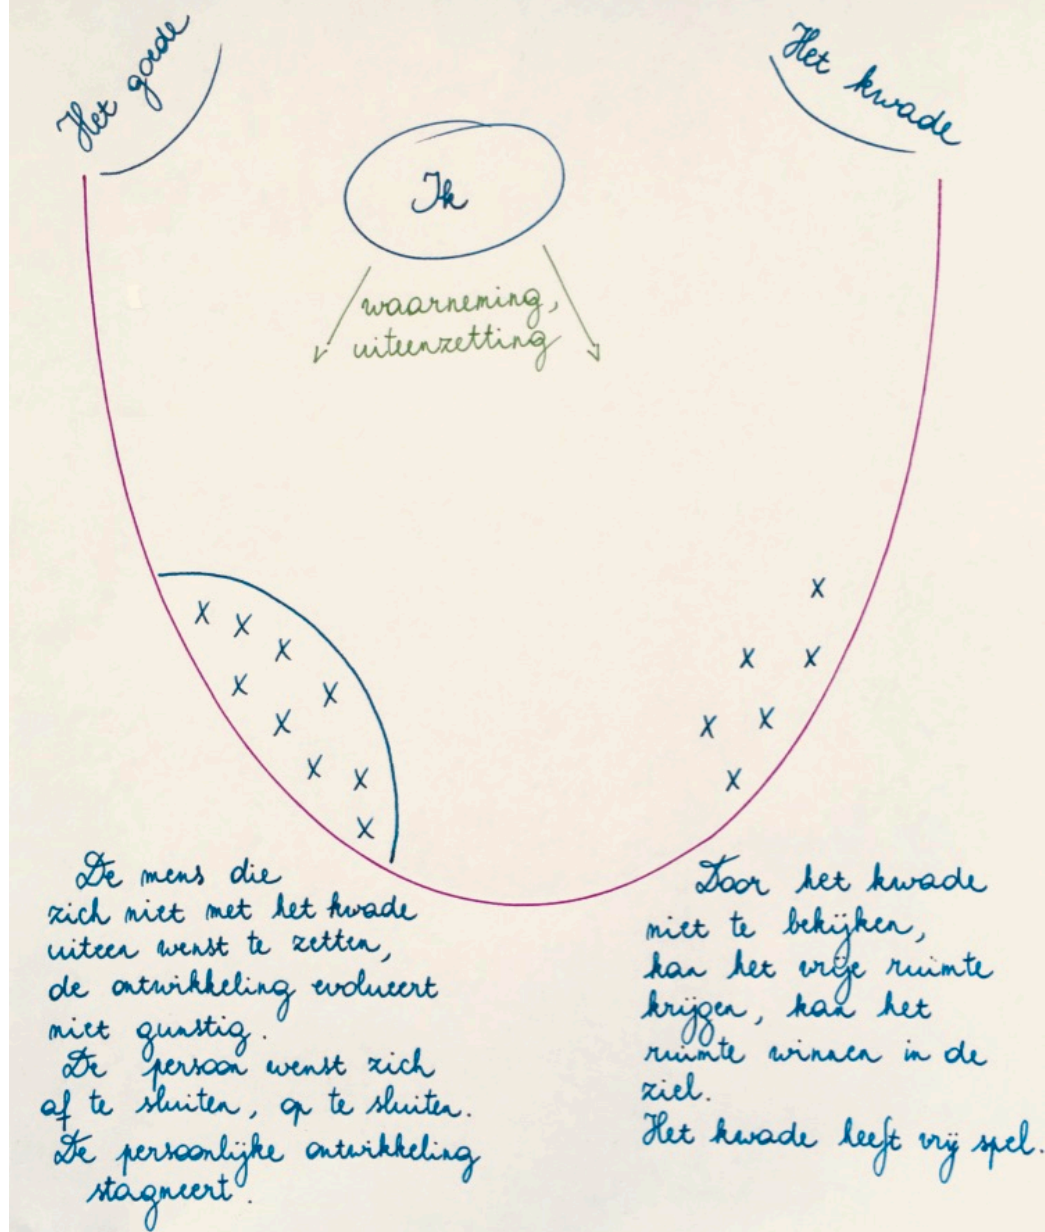 Het goede
Het kwade
Ik
waarneming,
uiteenzetting
x x x x x x x x x
x x x x x x
De mens die
zich niet met het kwade
uiteen wenst te zetten,
de ontwikkeling evolueert
niet gunstig.
De persoon wenst zich
af te sluiten, op te sluiten.
De persoonlijke ontwikkeling
stagneert.
Door het kwade
niet te bekijken,
kan het vrije ruimte
krijgen, kan het
ruimte winnen in de
ziel.
Het kwade heeft vrij spel.